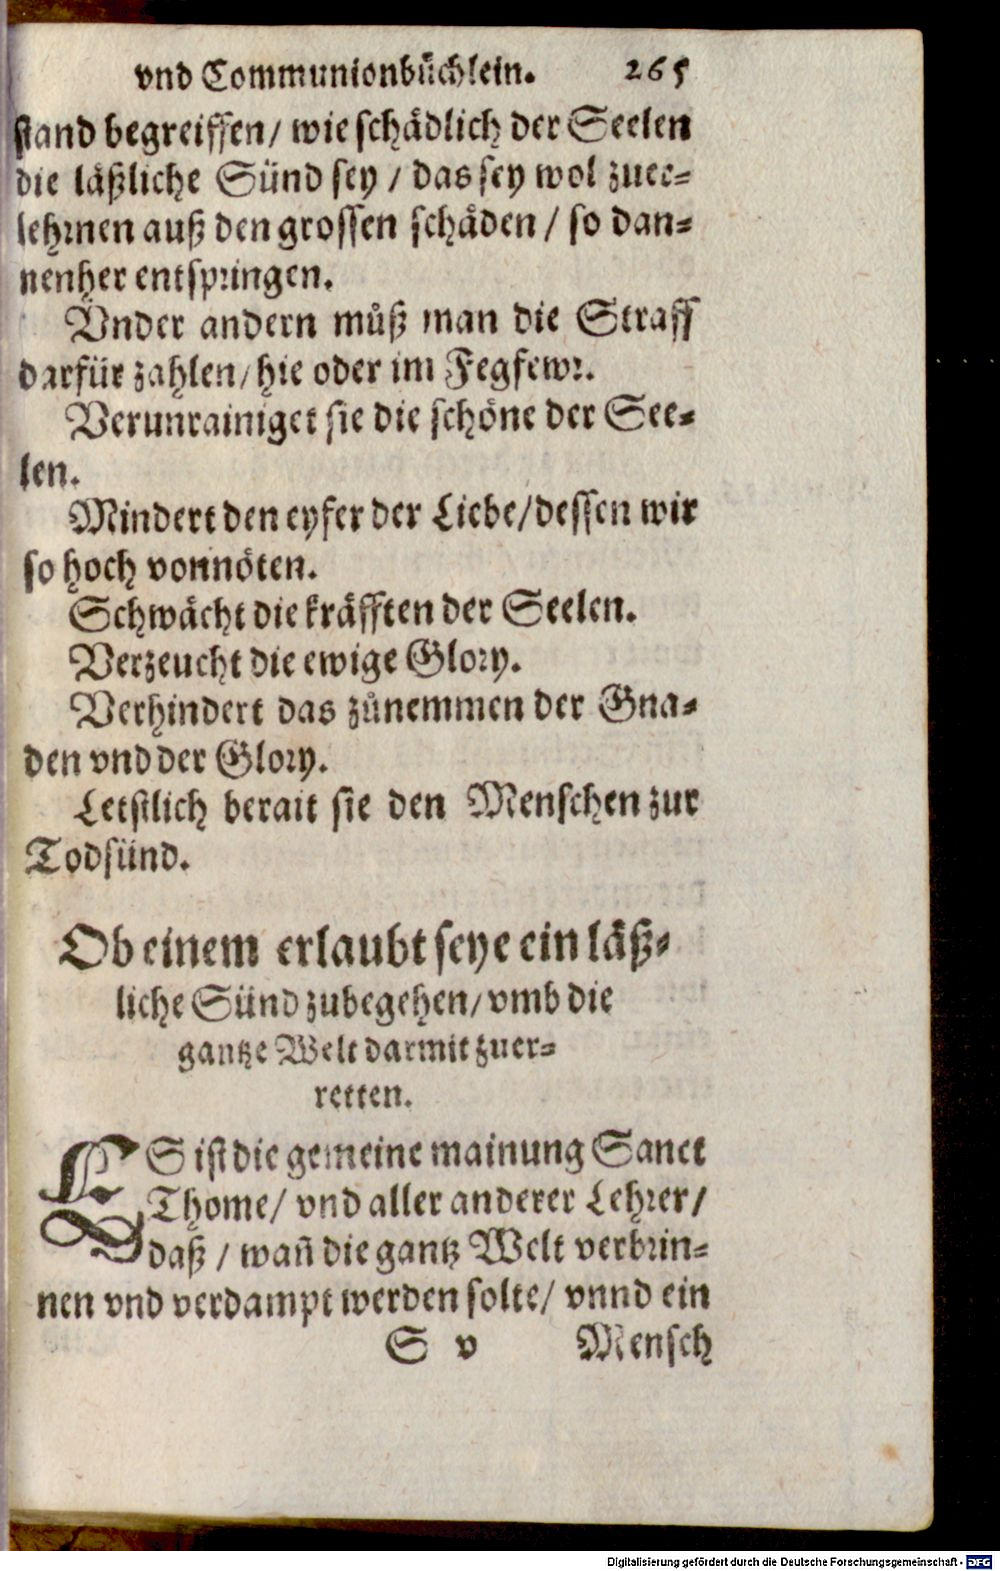 vnd Communionbůchlein. 265
stand begreiffen/ wie schådlich der Seelen
die låßliche Sünd sey / das sey wol zuer-
lehrnen auß den grossen schåden / so dan-
nenher entspringen.
Vnder andern můß man die Straff
darfür zahlen/ hie oder im Fegfewr.
Verunrainiget sie die schöne der See-
len.
Mindert den eyfer der Liebe/ dessen wir
so hoch vonnöten.
Schwåcht die kråfften der Seelen.
Verzeucht die ewige Glory.
Verhindert das zůnemmen der Gna-
den vnd der Glory.
Letstlich berait sie den Menschen zur
Todsünd.
Ob einem erlaubt seye ein låß-
liche Sünd zubegehen/ vmb die
gantze Welt darmit zuer-
retten.
ES ist die gemeine mainung Sanct
Thome/ vnd aller anderer Lehrer/
daß / wañ die gantz Welt verbrin-
nen vnd verdampt werden solte/ vnnd ein
S v Mensch
Digitalisierung gefördert durch die Deutsche Forschungsgemeinschaft - DFG